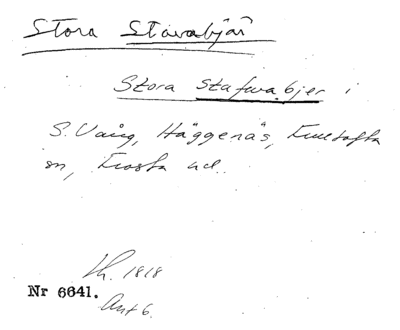 Stora Stavabjär
Stora Stafwa bjer i
S. Vång, Häggenäs, Fulltofta
sn, Frosta hd.
Lh. 1818
Nr 6641.
Akt 6.